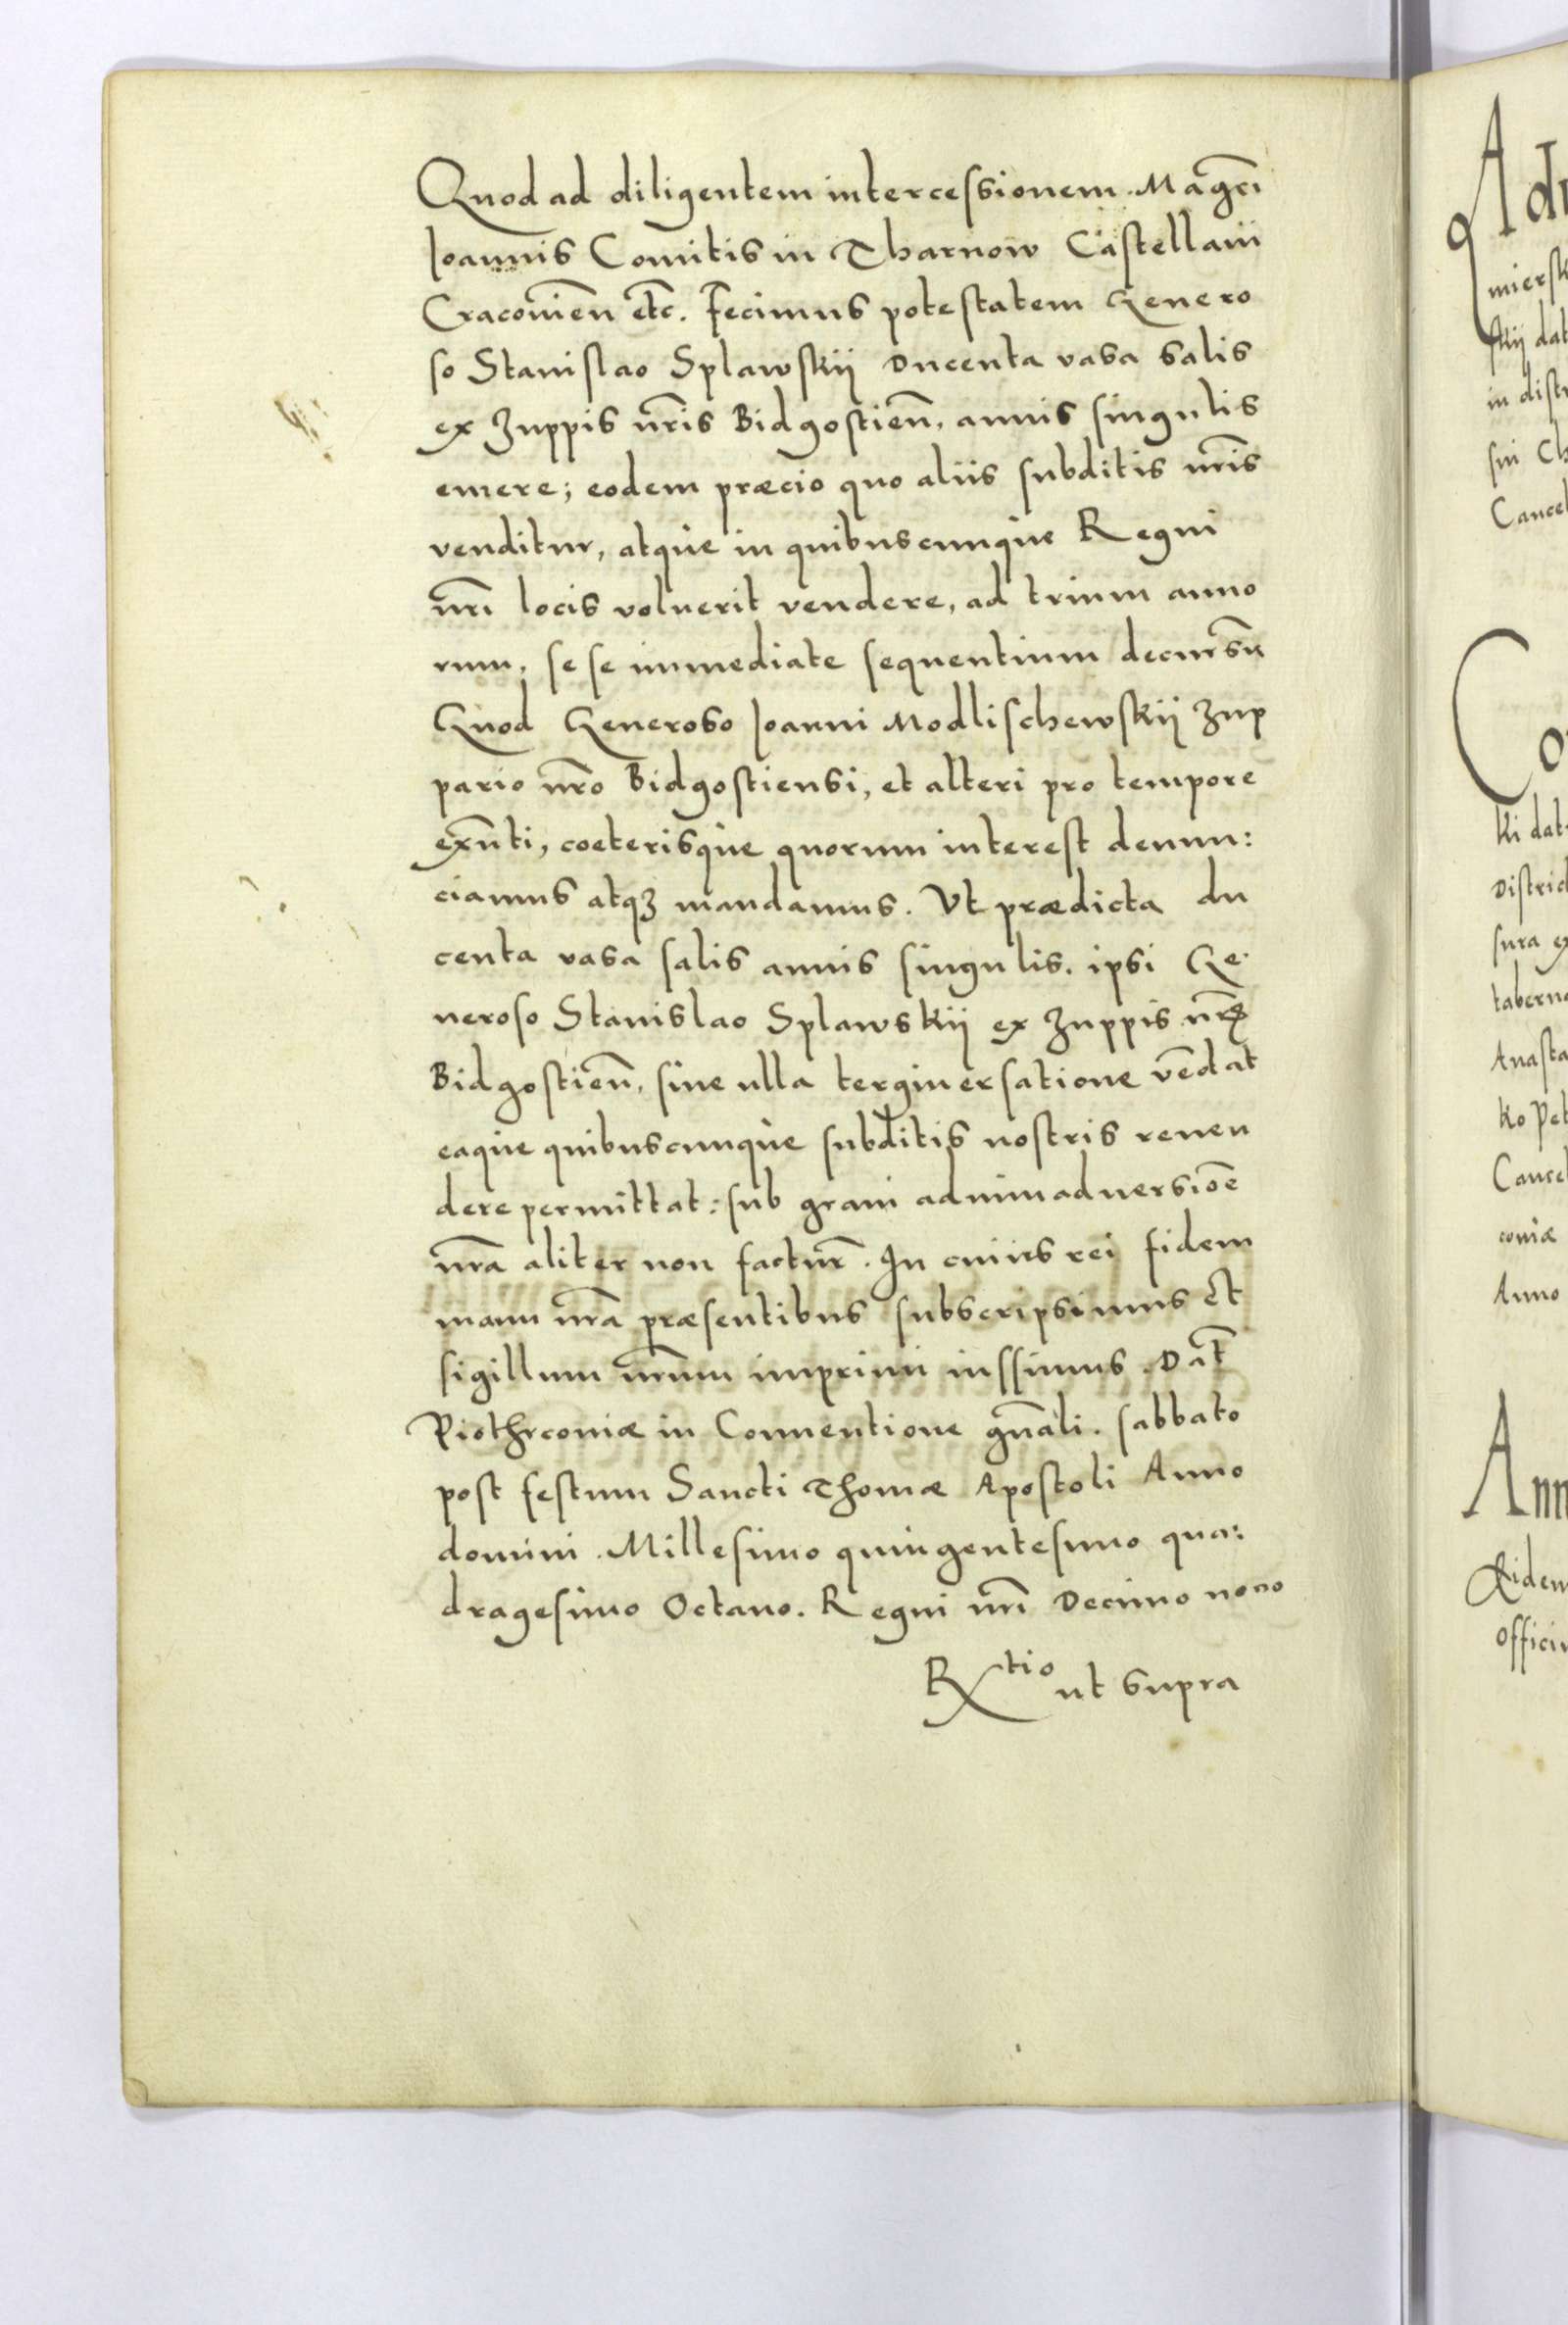 Quod ad diligentem intercessionem Magcī
Ioannis Comitis in Tharnow Castellani
Cracovieñ etc̄. Fecimus potestatem Genero
so Stanislao Splawskij Ducenta vasa salis
ex Zuppis nr̄is Bidgostieñ, annis singulis
emere; eodem præcio quo aliis subditis nr̄is
venditur, atque in quibuscunque Regni
nr̄i locis voluerit vendere, ad trium anno
rum, sese immediate sequentium decursū
Quod Generoso Ioanni Modlischewskij Zup
pario nr̄o Bidgostiensi, et alteri pro tempore
exn̄ti, coeterisque quorum interest denun:
ciamus atqʒ mandamus. Ut prædicta du
centa vasa salis annis singulis. ipsi Ge
neroso Stanislao Splawskij ex Zuppis nr̄is
Bidgostieñ, sine ulla tergiversatione vēdat
eaque quibuscunque subditis nostris reven
dere permittat: sub gravi adnimadversiōe
nr̄a aliter non factur̄. In cuius rei fidem
manu nr̄a præsentibus subscripsimus Et
sigillum nr̄um imprimi iussimus. Dat̄
Piothrconiæ in Conventione gn̄ali. sabbato
post festum Sancti Thomæ Apostoli Anno
domini. Millesimo quingentesimo qua:
dragesimo Octavo. Regni nr̄i Decimo nono
Rtio ut supra
Adm
miersk
skij dat
in distr
sui Ch
Cancel
Co
ki dat
District
sura ex
taberna
Anasta
ko Pet
Cancel
coviæ
Anno
Ann
Eidem
offici